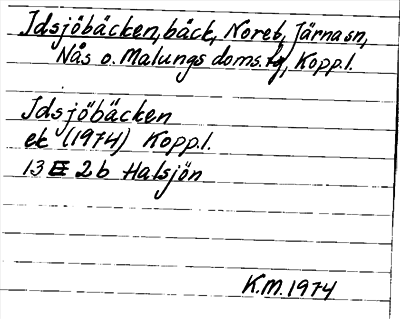 Idsjöbäcken, bäck, Noret, Järna sn,
Nås o. Malungs doms. tg, Kopp. l.
Idsjöbäcken
ek (1974) Kopp. l.
13 E 2b Halsjön
K.M. 1974